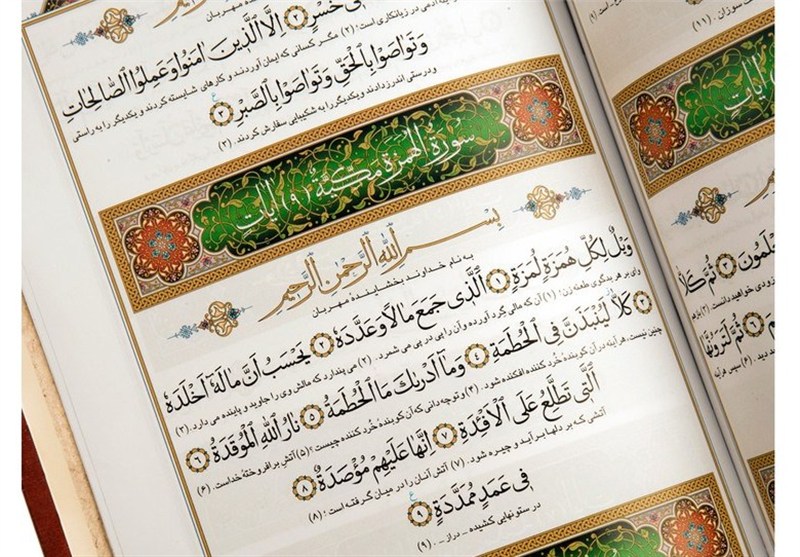 فِى خُسْرٍ ﴿٢﴾ اِلَّا الَّذِينَ اٰمَنُوا وَعَمِلُوا الصَّالِحَاتِ
آدمی در زیانکاری است؛ (۲) مگر کسانی که ایمان آوردند و کارهای شایسته کردند و یکدیگر را به راستی
وَتَوَاصَوْا بِالْحَقِّ وَتَوَاصَوْا بِالصَّبْرِ ﴿٣﴾
و درستی اندرز دادند و یکدیگر را به شکیبایی سفارش کردند. (۳)
سورة الهمزة مكية (٩) آيات
بِسْمِ اللّٰهِ الرَّحْمٰنِ الرَّحِيمِ
به نام خداوند بخشایندهٔ مهربان
وَيْلٌ لِكُلِّ هُمَزَةٍ لُمَزَةٍ ﴿١﴾ اَلَّذِى جَمَعَ مَالًا وَعَدَّدَهُ ﴿٢﴾ يَحْسَبُ اَنَّ مَالَهُ اَخْلَدَهُ
وای بر هر بدگوی طعنه زن؛ (۱) آن که مالی گرد آورده و آن را پی در پی می شمرد. (۲) می پندارد که مالش وی را جاوید و پاینده می دارد. (۳)
﴿٣﴾ كَلَّا لَيُنْبَذَنَّ فِى الْحُطَمَةِ ﴿٤﴾ وَمَا اَدْرٰىكَ مَا الْحُطَمَةُ ﴿٥﴾ نَارُ اللّٰهِ الْمُوقَدَةُ ﴿٦﴾
چنین نیست، هرآینه در آن کوبندهٔ خُرد کننده افکنده شود. (۴) و تو چه دانی که آن کوبندهٔ خُرد کننده چیست؟ (۵) آتش برافروختهٔ خداست. (۶)
اَلَّتِى تَطَّلِعُ عَلَى الْاَفْئِدَةِ ﴿٧﴾ اِنَّهَا عَلَيْهِمْ مُؤْصَدَةٌ ﴿٨﴾
آتشی که بر دلها برآید و چیره شود. (۷) آتش آنان را در میان گرفته است؛ (۸)
فِى عَمَدٍ مُمَدَّدَةٍ ﴿٩﴾
در ستونهایی کشیده ـ دراز ـ. (۹)
سوزان است. (۱۱)
آيات
ثُمَّ كَلَّا
زودی خواهید دانست.
ثُمَّ لَتَرَوُنَّهَا
سپس هرآینه